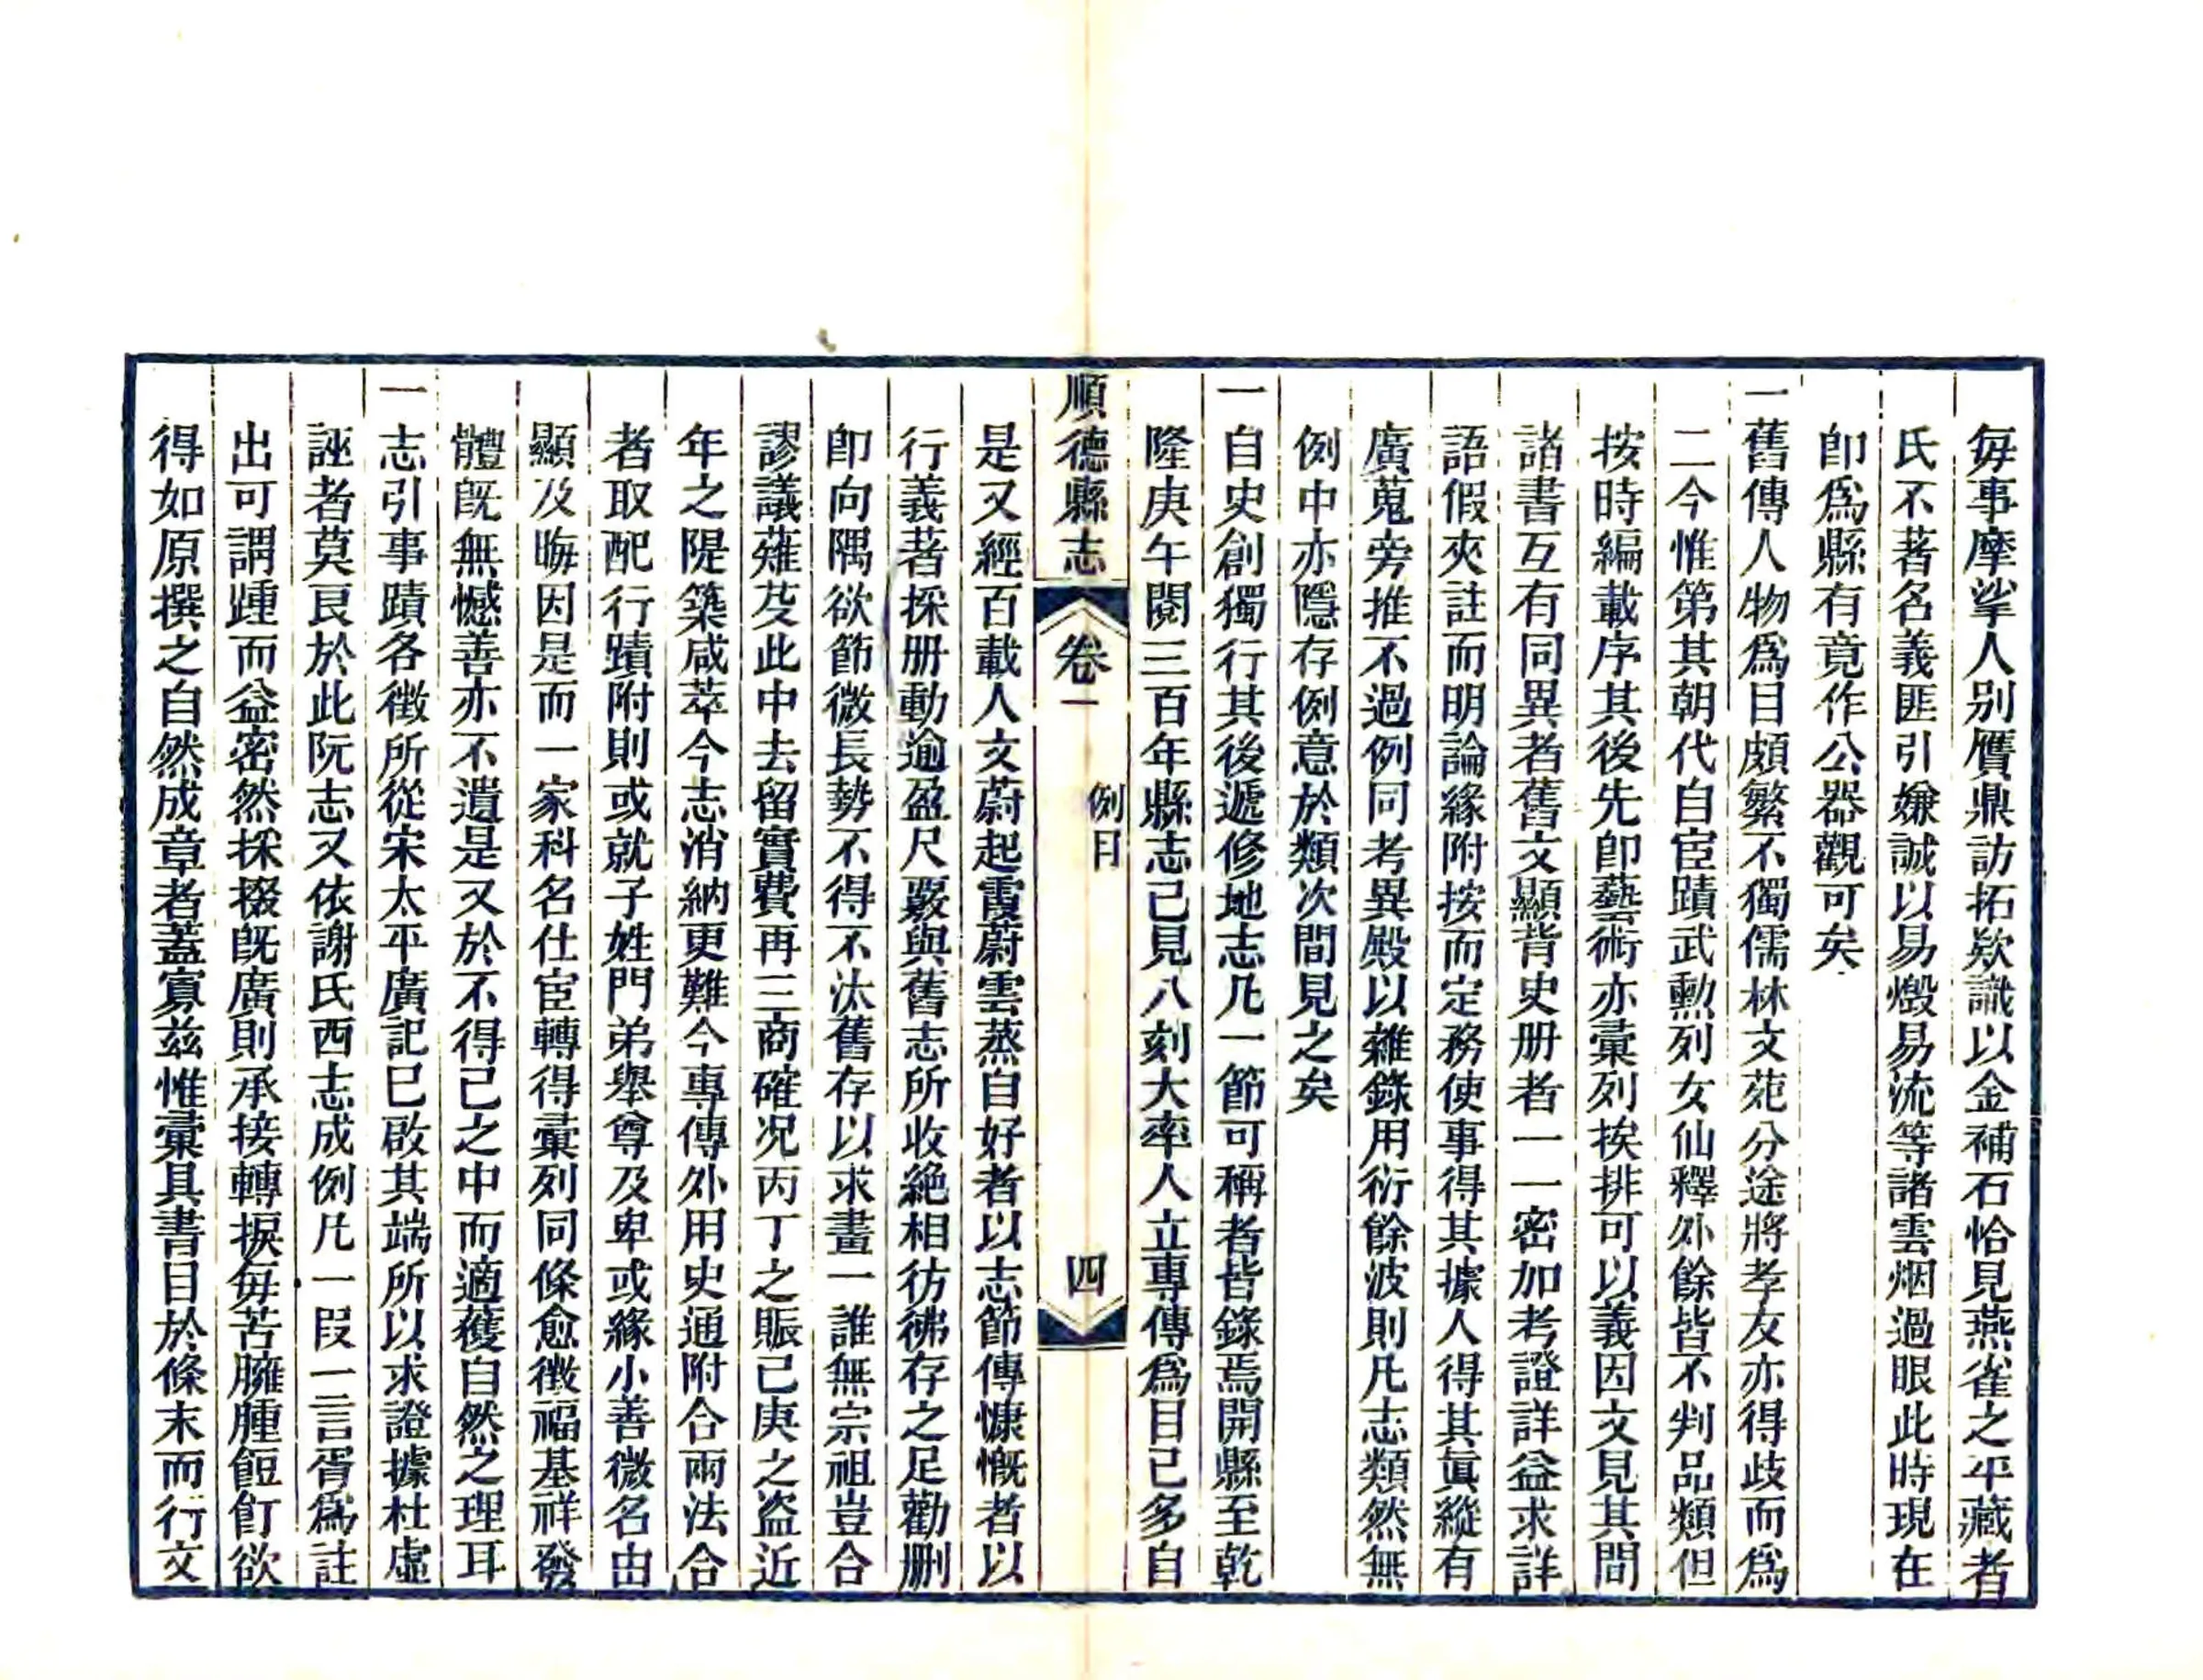 每事摩挲人别贗鼎訪拓欵識以金補石恰見燕雀之平藏者
氏不著名義匪引嫌誠以易燬易流等諸雲烟過眼此時現在
卽爲縣有竟作公器觀可矣
一舊傳人物爲目頗繁不獨儒林文苑分途將孝友亦得歧而爲
二今惟第其朝代自宦蹟武勳列女仙釋外餘皆不判品類但
按時編載序其後先卽藝術亦彙列挨排可以義因文見其間
諸書互有同異者舊文顯背史册者一一密加考證詳益求詳
語假夾註而明論緣附按而定務使事得其據人得其眞縱有
廣蒐旁推不過例同考異殿以雜錄用衍餘波則凡志類然無
例中亦隱存例意於類次間見之矣
一自史創獨行其後遞修地志凡一節可稱者皆錄焉開縣至乾
隆庚午閱三百年縣志己見八刻大率人立專傳爲目己多自
順德縣志 卷一 例目 四
是又經百載人文蔚起霞蔚雲蒸自好者以志節傳慷慨者以
行義著採册動逾盈尺覈與舊志所收絶相彷彿存之足勸删
卽向隅欲節微長勢不得不汰舊存以求畫一誰無宗祖豈合
謬議薙芟此中去留實費再三商確况丙丁之賑己庚之盜近
年之隄築咸萃今志消納更難今專傳外用史通附合兩法合
者取配行蹟附則或就子姓門弟舉尊及卑或緣小善微名由
顯及晦因是而一家科名仕宦轉得彙列同條愈徵福基祥發
體旣無憾善亦不遺是又於不得己之中而適獲自然之理耳
一志引事蹟各徵所從宋太平廣記已啟其端所以求證據杜虛
誣者莫良於此阮志又依謝氏西志成例凡一叚一言胥爲註
出可謂踵而益密然採掇旣廣則承接轉捩每苦臃腫餖飣欲
得如原撰之自然成章者蓋寡兹惟彙具書目於條末而行文